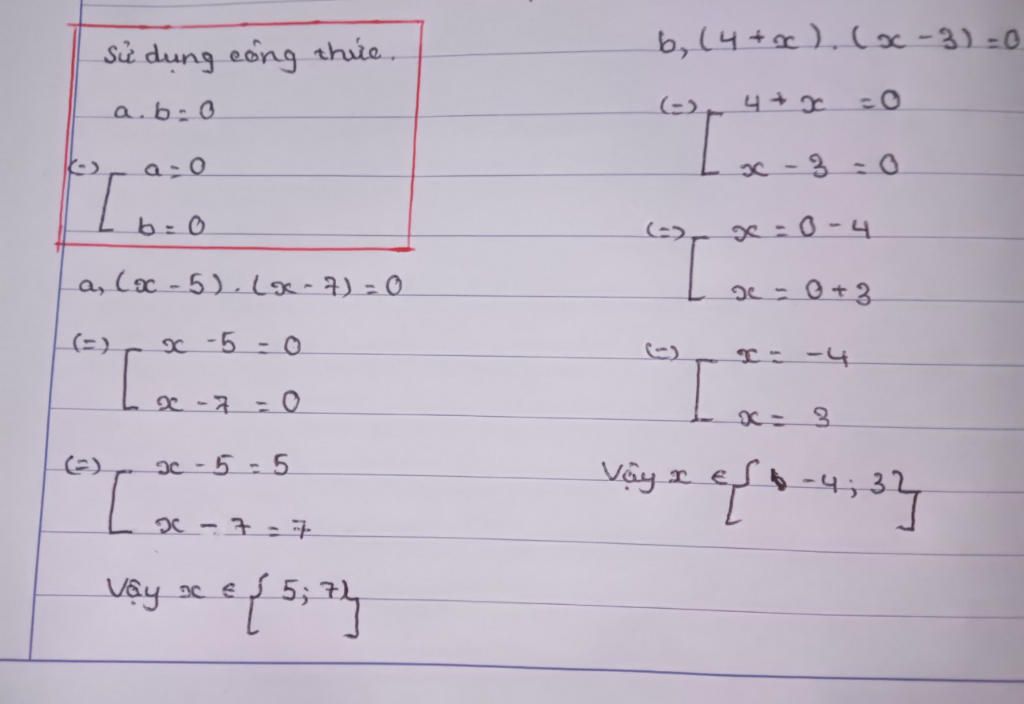 Sử dụng công thức.
a.b=0
(=) [ a=0
b=0
a, (x-5).(x-7)=0
(=) [ x-5=0
x-7=0
(=) [ x-5=5
x-7=7
Vậy x ∈ {5;7}
b, (4+x).(x-3)=0
(=) [ 4+x=0
x-3=0
(=) [ x=0-4
x=0+3
(=) [ x=-4
x=3
Vậy x ∈ {-4;3}